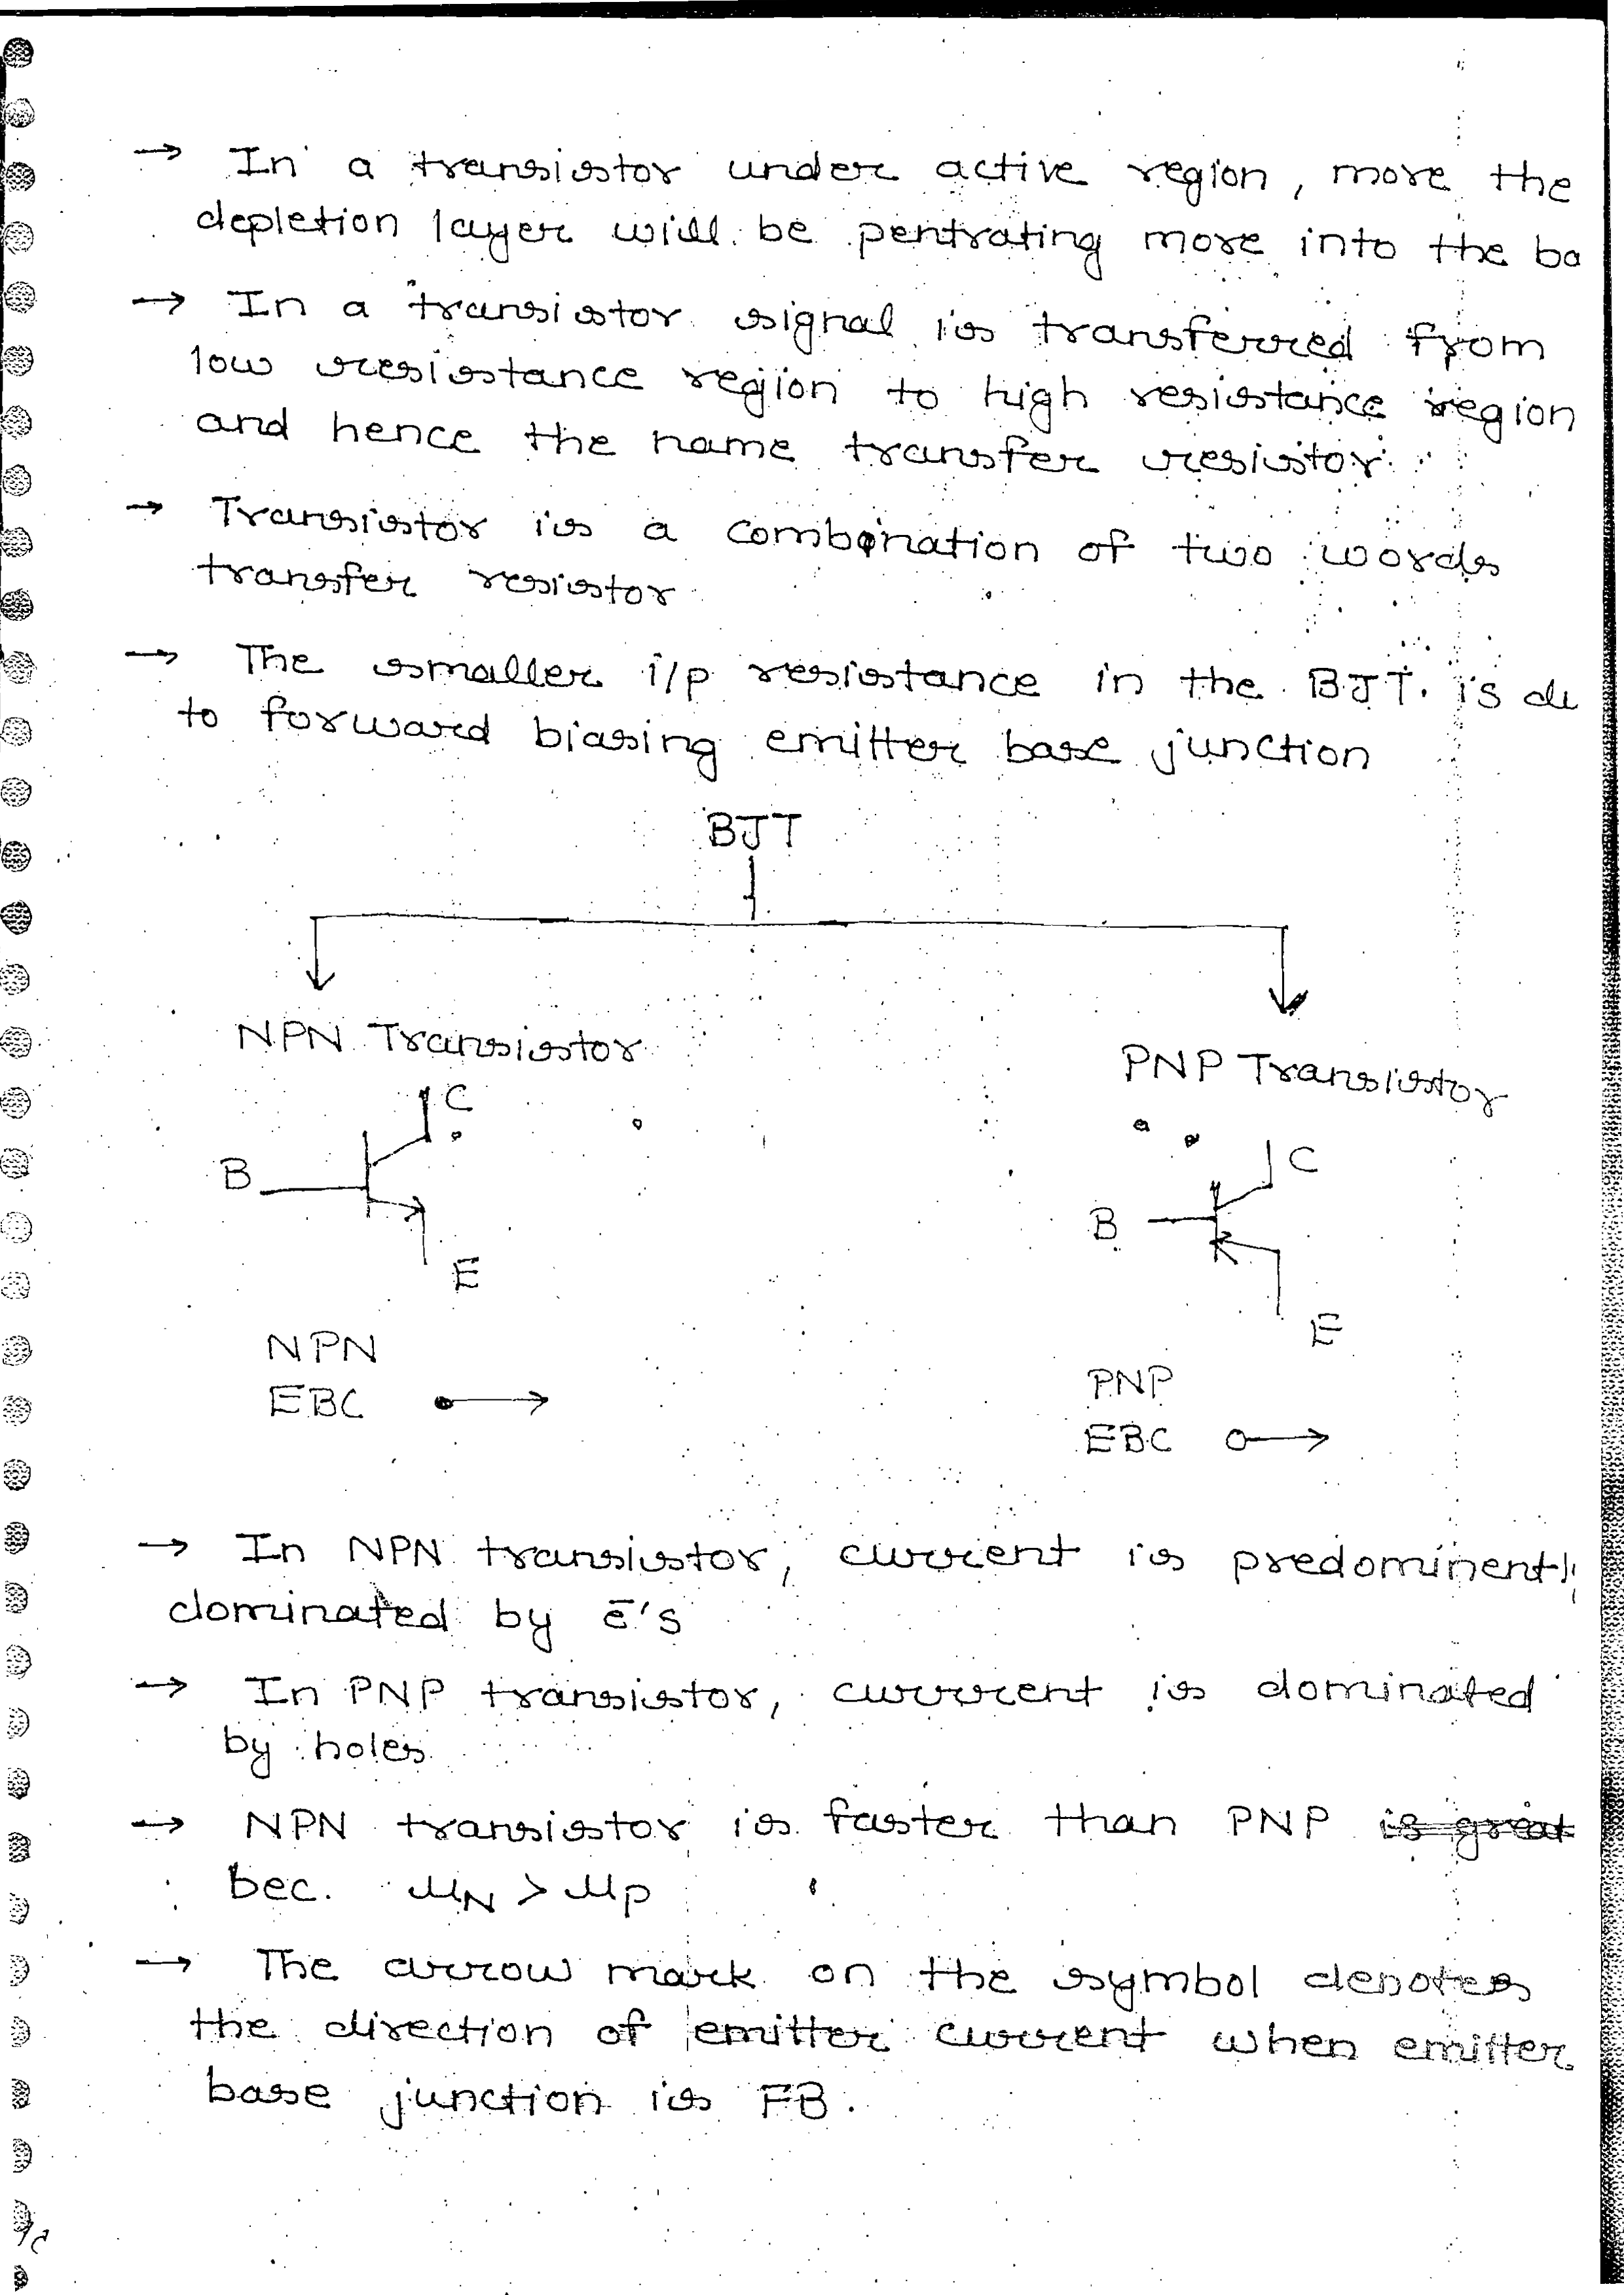 → In a transistor under active region, more the
depletion layer will be pentrating more into the ba
→ In a transistor signal is transferred from
low resistance region to high resistance region
and hence the name transfer resistor
→ Transistor is a combination of two words
transfer resistor
→ The smaller i/p resistance in the BJT. is du
to forward biasing emitter base junction
BJT
NPN Transistor
PNP Transistor
C
B
E
C
B
E
NPN
EBC
PNP
EBC
→ In NPN transistor, current is predominently
dominated by ē's
→ In PNP transistor, current is dominated
by holes
→ NPN transistor is faster than PNP is great
bec. μN > μp
→ The arrow mark on the symbol denotes
the direction of emitter current when emitter
base junction is FB.